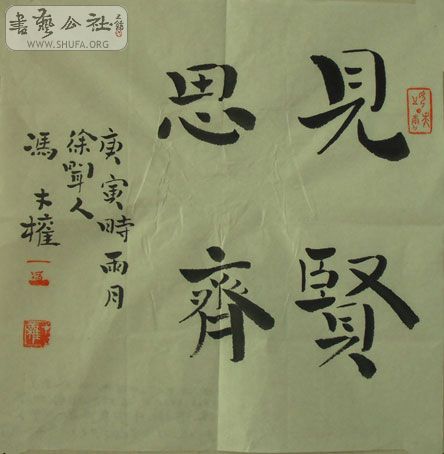 書藝公社
WWW.SHUFA.ORG
見賢
思齊
庚寅時雨月
徐聞人
馮